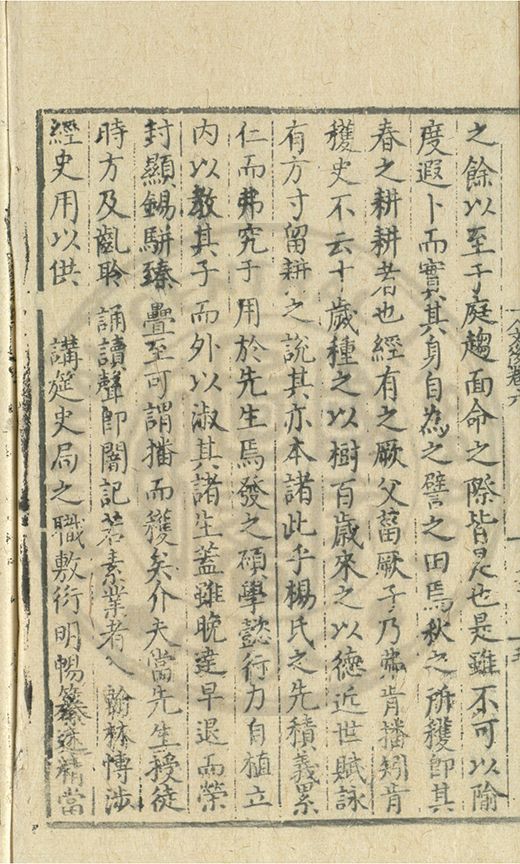 之餘以至于庭趨面命之際皆是也是雖不可以隃
度遐卜而實其身自為之譬之田焉秋之所穫即其
春之耕耕者也經有之厥父菑厥子乃弗肯播矧肯
穫史不云十歲種之以樹百歲來之以德近世賦詠
有方寸留耕之說其亦本諸此乎楊氏之先積義累
仁而弗究于用於先生焉發之碩學懿行力自植立
內以教其子而外以淑其諸生蓋雖晚達早退而榮
封顯錫駢臻疊至可謂播而穫矣介夫當先生授徒
時方及齓聆誦讀聲即闇記若素業者入翰林博涉
經史用以供講筵史局之職敷衍明暢纂述精當